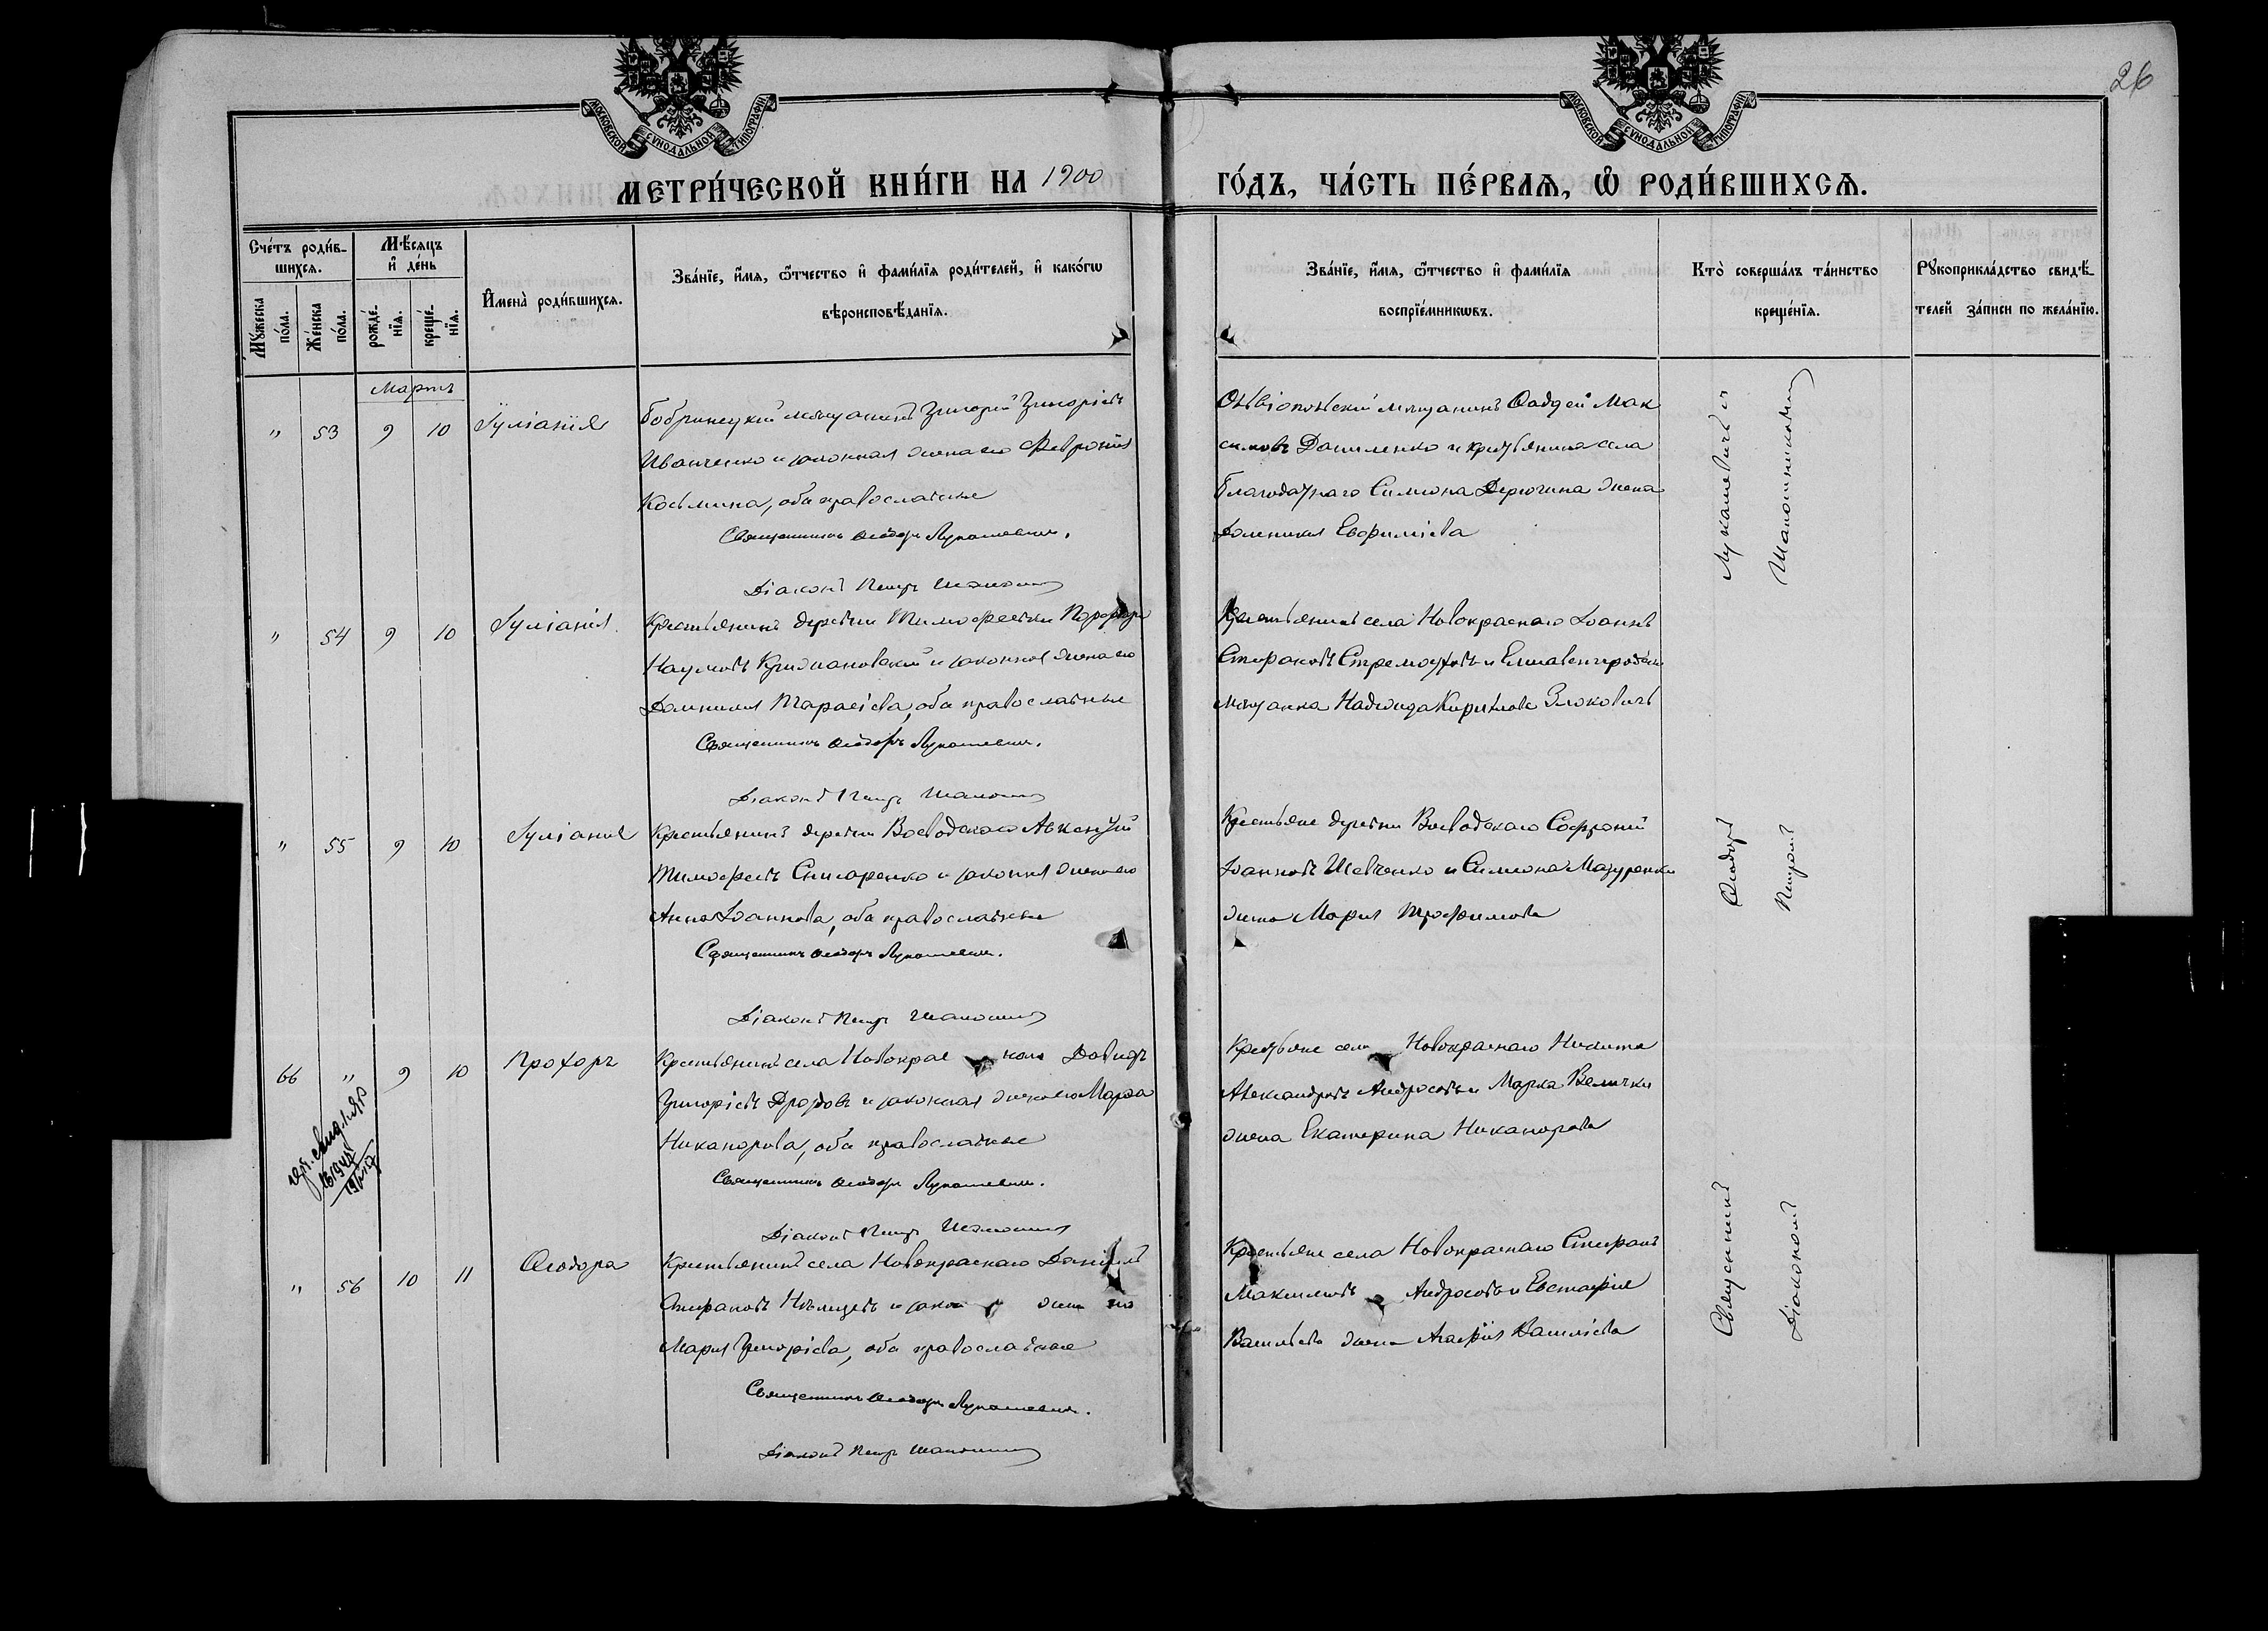 26
МОСКОВСКОЙ СУНОДАЛЬНОЙ ТИПОГРАФІИ
МОСКОВСКОЙ СУНОДАЛЬНОЙ ТИПОГРАФІИ
МЕТРИ́ЧЕСКОЙ КНИ́ГИ НА 1900 ГО́ДЪ, ЧА́СТЬ ПЕ́РВАѦ, Ѽ РОДИ́ВШИХСѦ.
Сче́тъ роди́в-
шихся.
Мѣ́сяцъ
и҆ де́нь
Мꙋ́жеска
по́ла.
Же́нска
по́ла.
рожде́-
нїя.
креще́-
нїя.
И҆мена̀ роди́вшихся.
Зва́нїе, и҆́мя, ѻ҆́тчество и҆ фами́лїя роди́телей, и҆ како́гѡ
вѣроисповѣ́данїя.
Зва́нїе, и҆́мя, ѻ҆́тчество и҆ фами́лїя
воспрїе́мникѡвъ.
Кто̀ соверша́лъ та́инство
креще́нїя.
Рꙋкоприкла́дство свидѣ́-
телей за́писи по жела́нїю.
Мартъ
" 53 9 10 Іуліанія
Бобринецкій мѣщанинъ Григорій Григоріевъ
Иванченко и законная жена его Февронія
Косьмина, оба православные
Священникъ Ѳеодоръ Лукашевичъ.
Діаконъ Петръ
Ольвіопольскій мѣщанинъ Ѳаддей Мак
симовъ Даниленко и крестьянина села
Благодатнаго Симеона Дерюгина жена
Домникія Евфиміева
" 54 9 10 Іуліанія
Крестьянинъ деревни Тимофеевки Порфирій
Наумовъ Крижановскій и законная жена его
Домникія Тарасіева, оба православные
Священникъ Ѳеодоръ Лукашевичъ.
Діаконъ Петръ
Крестьянинъ села Новокраснаго Іоаннъ
Стефановъ Стремоуховъ и Елисаветградская
мѣщанка Надежда Кирилова
" 55 9 10 Іуліанія
Крестьянинъ деревни Воеводскаго Авксентій
Тимофеевъ Снисаренко и законная жена его
Анна Іоаннова, оба православные
Священникъ Ѳеодоръ Лукашевичъ.
Діаконъ Петръ
Крестьяне деревни Воеводскаго Софроній
Іоанновъ Шевченко и Симеона Мазуренка
жена Марія Трофимова
66 " 9 10 Прохоръ
Крестьянинъ села Новокраснаго Давидъ
Григоріевъ Дроздовъ и законная жена его Марфа
Никанорова, оба православные
Священникъ Ѳеодоръ Лукашевичъ.
Діаконъ Петръ
Крестьяне села Новокраснаго Никита
Александровъ Андросовъ и Марка Велички
жена Екатерина Никанорова
" 56 10 11 Ѳеодора
Крестьянинъ села Новокраснаго Даніилъ
Стефановъ Нѣмцевъ и законная жена его
Марія Григоріева, оба православные
Священникъ Ѳеодоръ Лукашевичъ.
Діаконъ Петръ
Крестьяне села Новокраснаго Стефанъ
Максимовъ Андросовъ и Евстафія
Васильева жена Агафія Василіева
Священникъ Ѳеодоръ Лукашевичъ и
Діаконъ Петръ